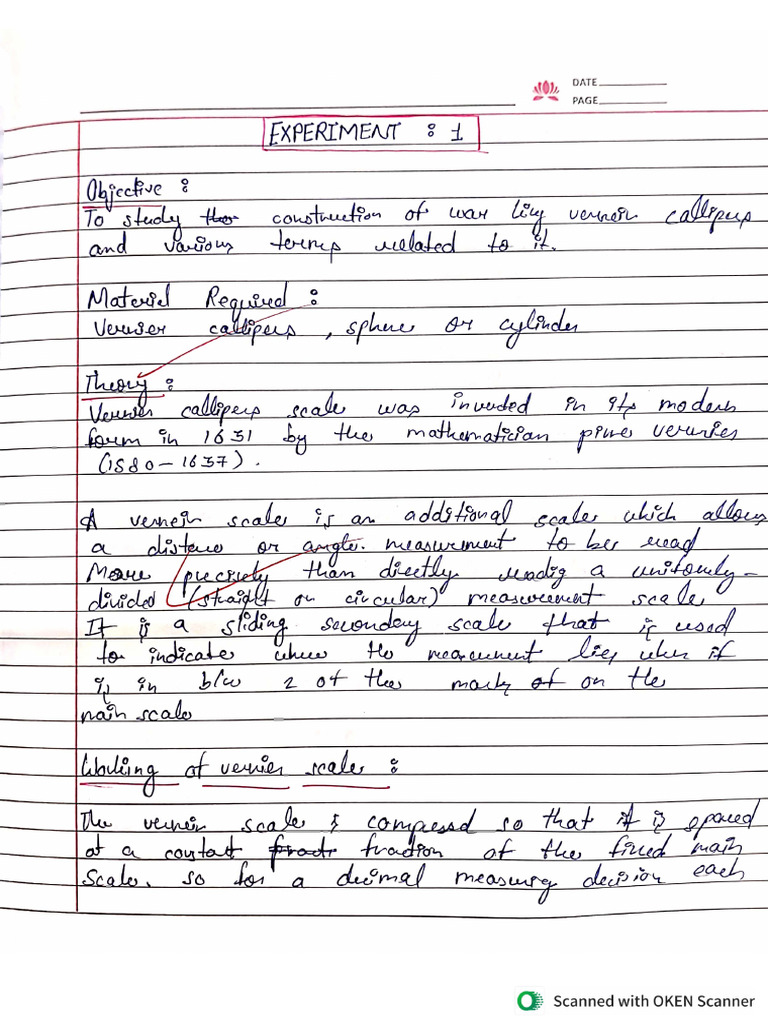 DATE
PAGE
EXPERIMENT : 1
Objective :
To study construction of vernier callipers
and various terms related to it.
Material Required :
Vernier callipers , sphere or cylinder
Theory :
Vernier callipers scale was invented in its modern
form in 1631 by the mathematician
(1580-1637).
A vernier scale is an additional scale which allows
a distance or angle measurement to be read
More precisely than directly readig a uniformly-
divided (straight or circular) measurement scale
It is a sliding secondary scale that is used
to indicate where the measurement lies when it
is in b/w 2 of the marks of on the
main scale
Working of vernier scale :
The vernier scale is compressd so that it is spaced
at a constatt fraction of the fixed main
scale. so for a decimal measuring decision each
Scanned with OKEN Scanner